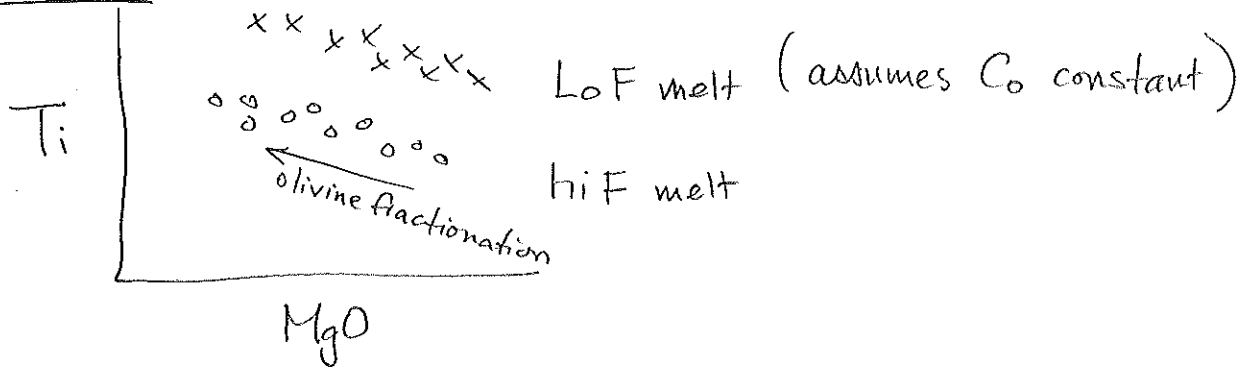 LoF melt (assumes Co constant)
Ti
hiF melt
olivine fractionation
MgO